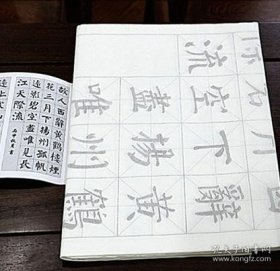 故人西辭黃鶴樓煙
花三月下揚州孤帆
遠影碧空盡唯見長
江天際流
辭黃鶴
月下揚州
空盡唯
際流